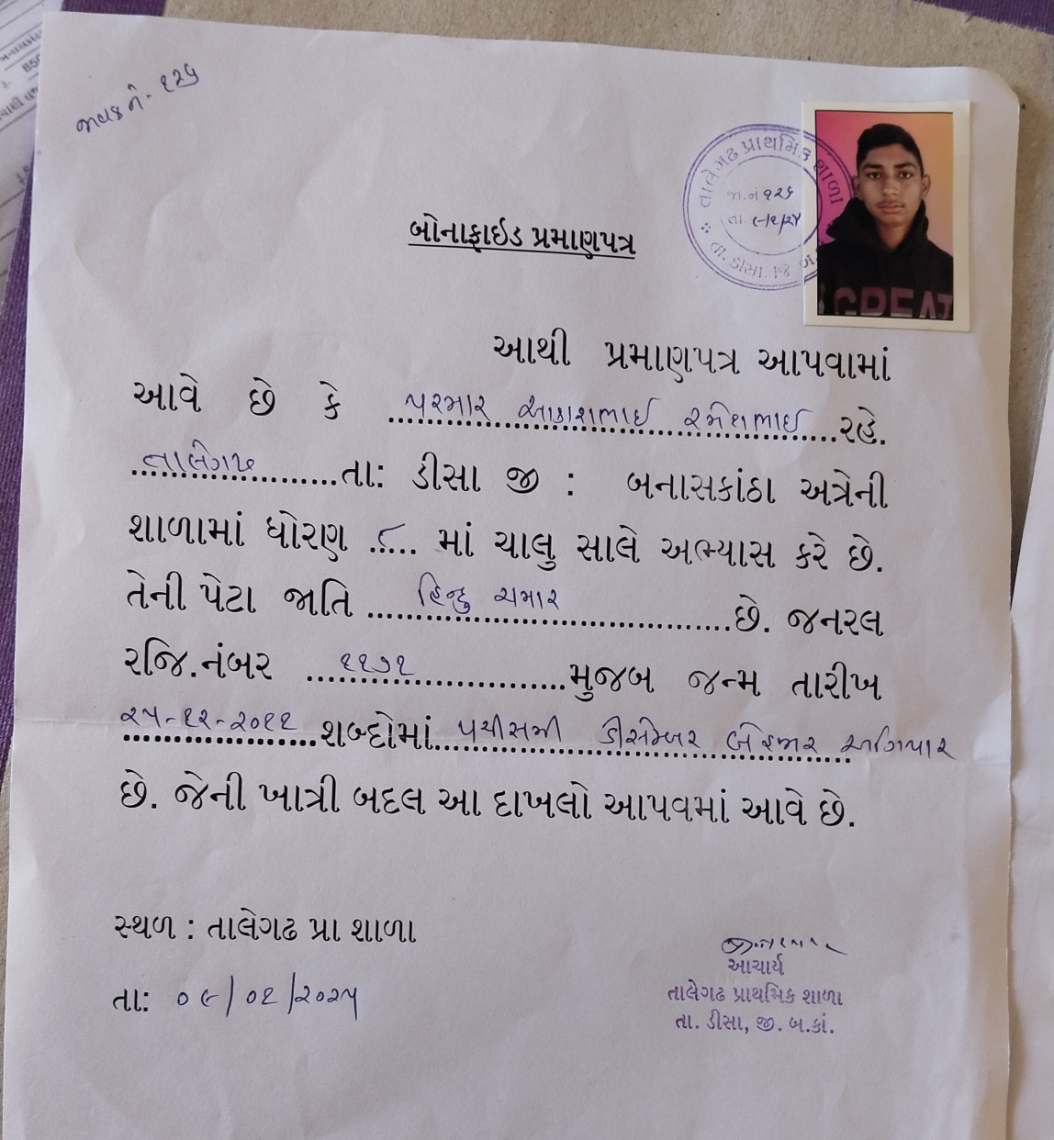 જાવક નં - ૧૨૬
તાલેગઢ પ્રાથમિક શાળા
જા.નં ૧૨૬
તા. ડીસા
બોનાફાઇડ પ્રમાણપત્ર
આથી પ્રમાણપત્ર આપવામાં
આવે છે કે પરમાર આકાશભાઈ રમેશભાઈ રહે.
તાલેગઢ તા: ડીસા જી : બનાસકાંઠા અત્રેની
શાળામાં ધોરણ ૮ માં ચાલુ સાલે અભ્યાસ કરે છે.
તેની પેટા જાતિ હિન્દુ ચમાર છે. જનરલ
રજિ.નંબર ૧૧૭૧ મુજબ જન્મ તારીખ
૨૫-૧૨-૨૦૧૧ શબ્દોમાં પચીસમી ડીસેમ્બર બે હજાર અગિયાર
છે. જેની ખાત્રી બદલ આ દાખલો આપવમાં આવે છે.
સ્થળ : તાલેગઢ પ્રા શાળા
તા: ૦૯/૦૧/૨૦૨૫
આચાર્ય
તાલેગઢ પ્રાથમિક શાળા
તા. ડીસા, જી. બ.કાં.
GREAT